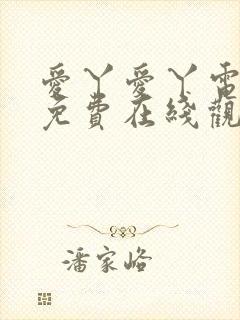 愛丫愛丫電
免費在綫觀
潘家峪